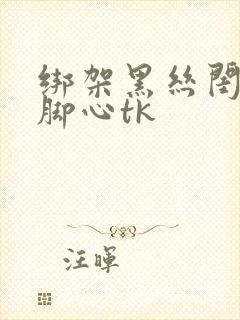 绑架黑丝閨
脚心tk
汪暉